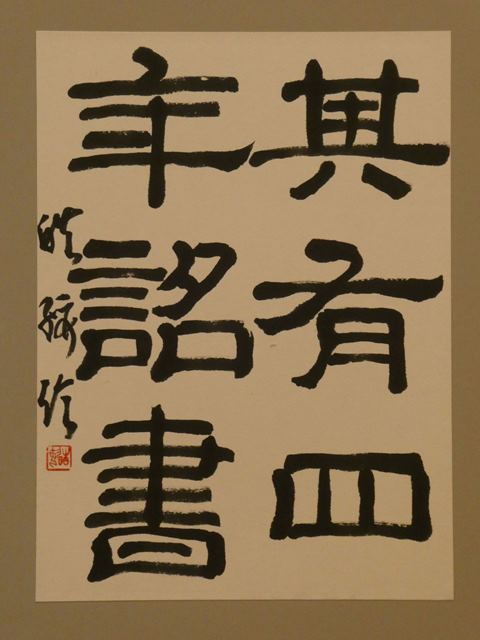 其有四
年詔書